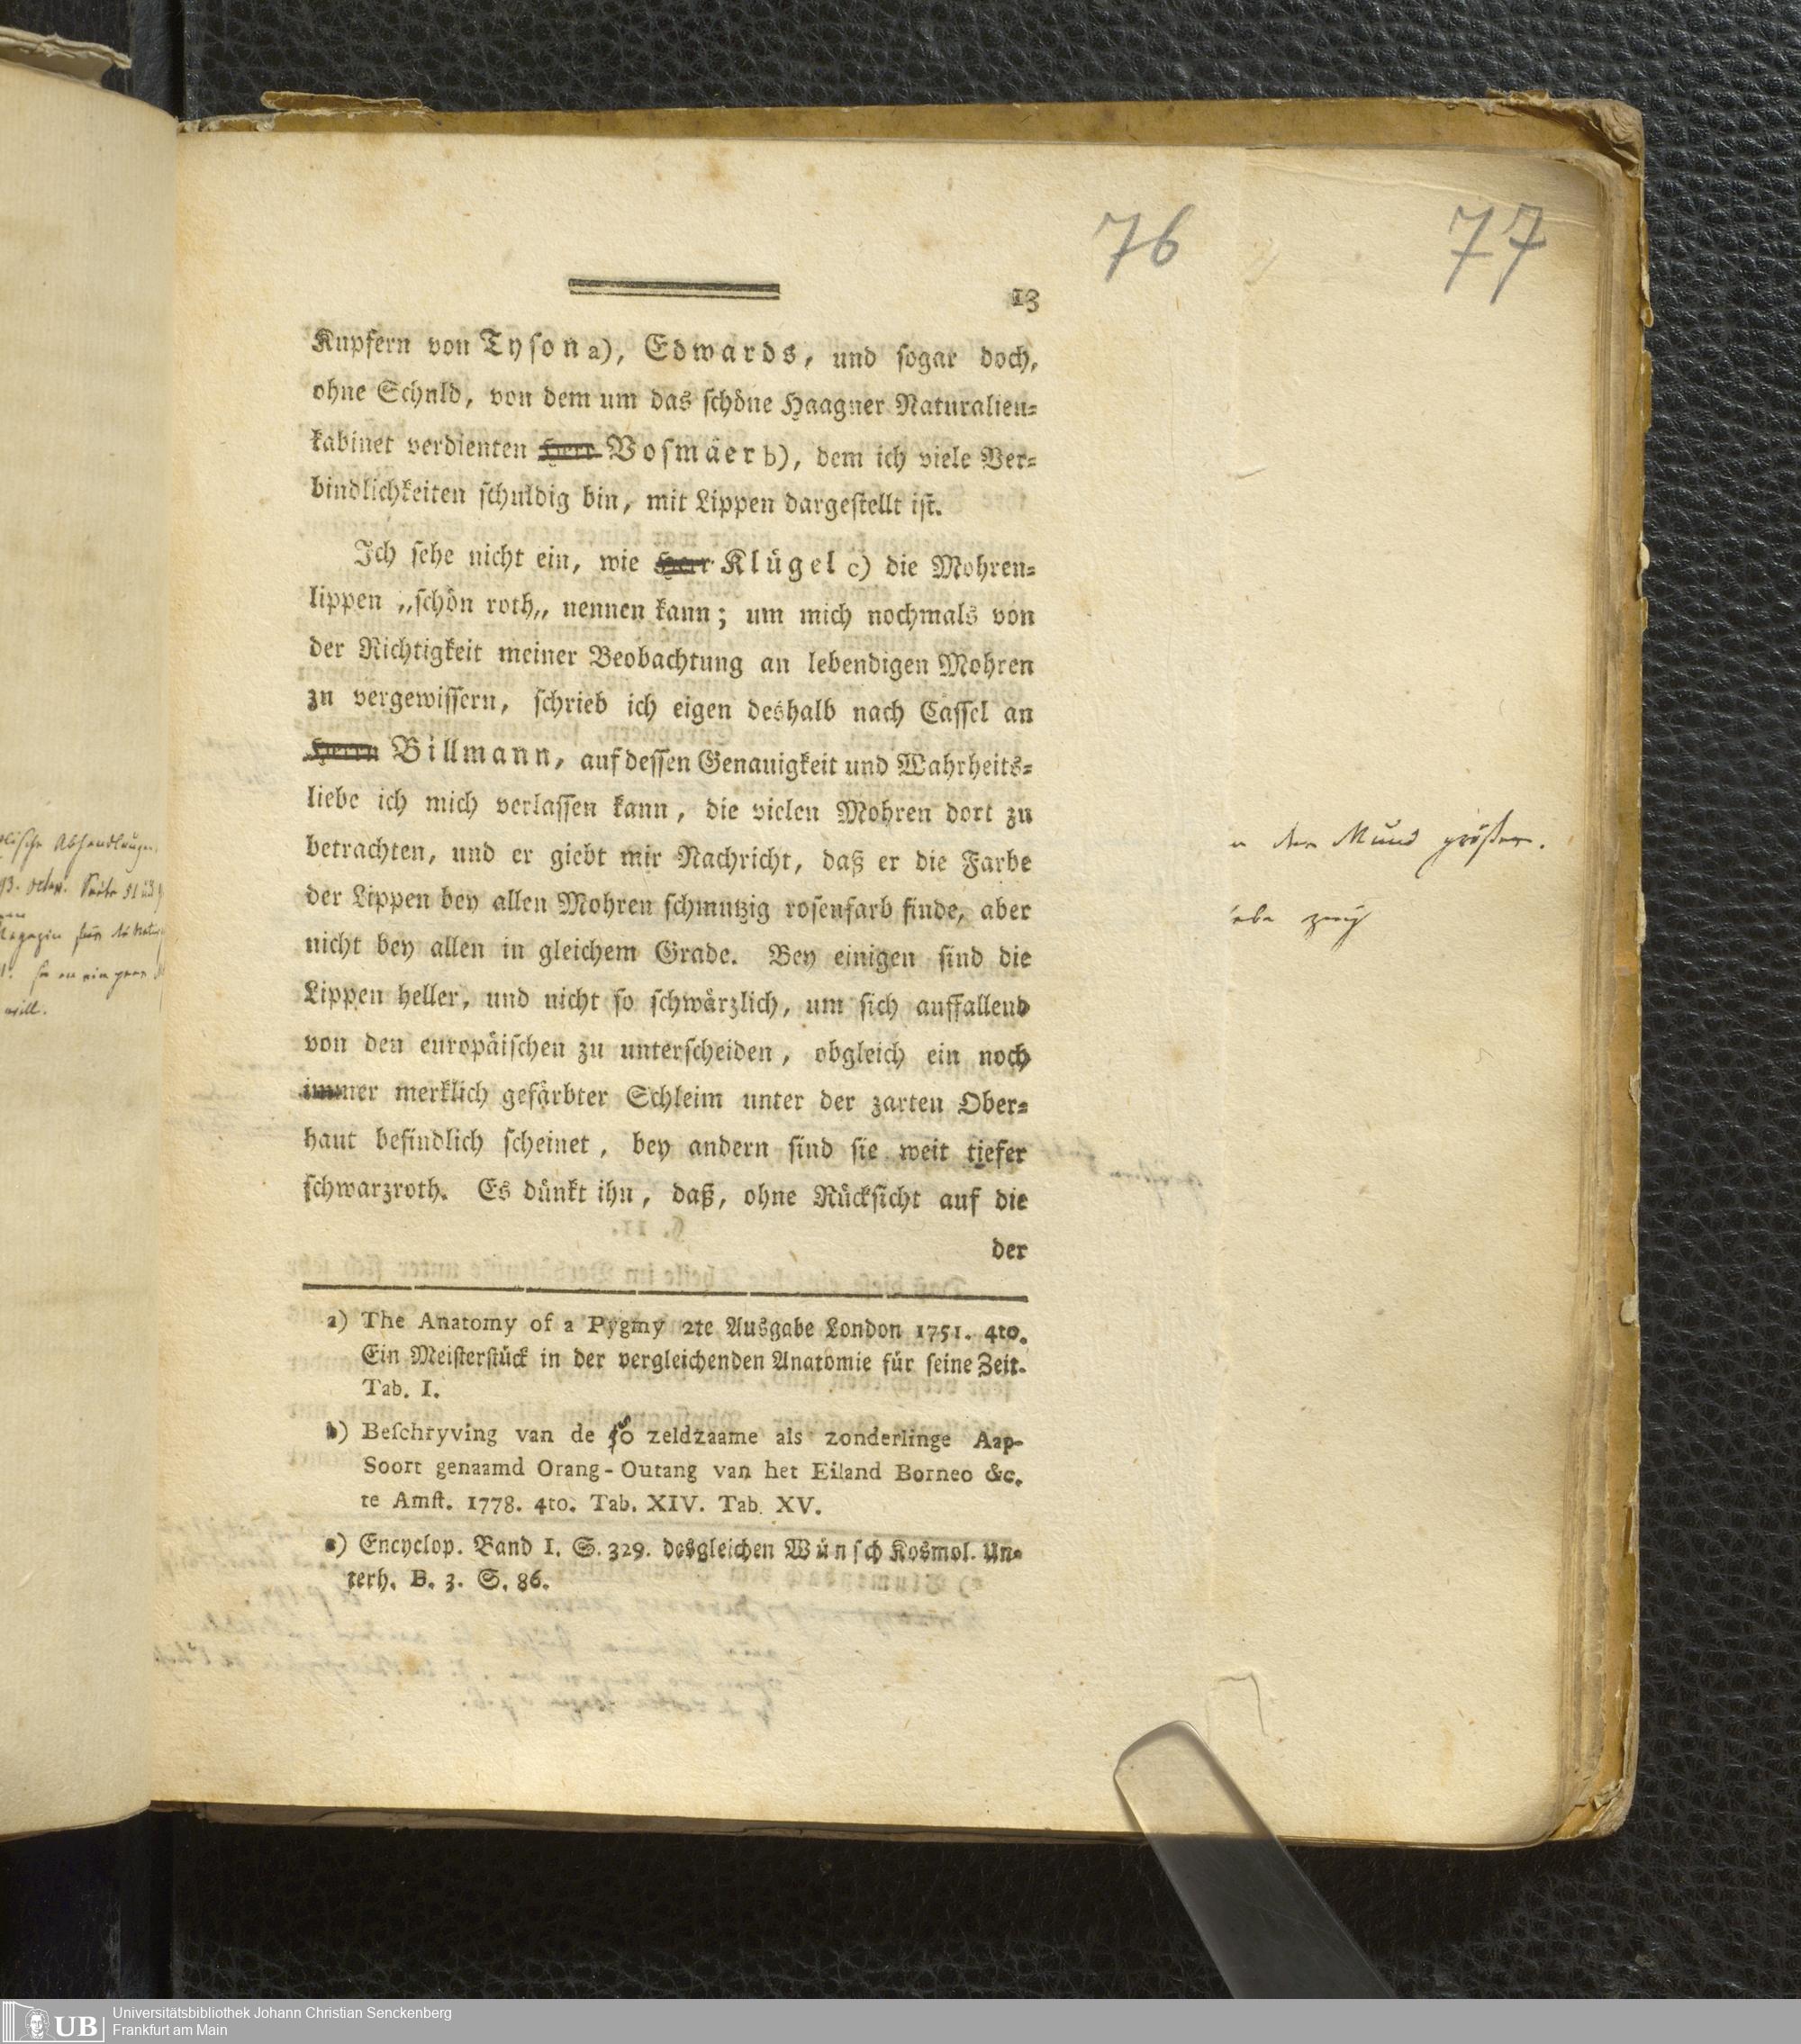 76
77
13
Kupfern von Tyson a), Edwards, und sogar doch,
ohne Schuld, von dem um das schöne Haagner Naturalien-
kabinet verdienten Herr Vosmäer b), dem ich viele Ver-
bindlichkeiten schuldig bin, mit Lippen dargestellt ist.
Ich sehe nicht ein, wie Herr Klügel c) die Mohren-
lippen „schön roth„ nennen kann; um mich nochmals von
der Richtigkeit meiner Beobachtung an lebendigen Mohren
zu vergewissern, schrieb ich eigen deshalb nach Cassel an
Herrn Billmann, auf dessen Genauigkeit und Wahrheits-
liebe ich mich verlassen kann, die vielen Mohren dort zu
betrachten, und er giebt mir Nachricht, daß er die Farbe
der Lippen bey allen Mohren schmutzig rosenfarb finde, aber
nicht bey allen in gleichem Grade. Bey einigen sind die
Lippen heller, und nicht so schwärzlich, um sich auffallend
von den europäischen zu unterscheiden, obgleich ein noch
immer merklich gefärbter Schleim unter der zarten Ober-
haut befindlich scheinet, bey andern sind sie weit tiefer
schwarzroth. Es dünkt ihn, daß, ohne Rücksicht auf die
der
a) The Anatomy of a Pygmy 2te Ausgabe London 1751. 4to.
Ein Meisterstück in der vergleichenden Anatomie für seine Zeit.
Tab. I.
b) Beschryving van de so zeldzaame als zonderlinge Aap-
Soort genaamd Orang-Outang van het Eiland Borneo &c.
te Amst. 1778. 4to. Tab. XIV. Tab. XV.
c) Encyclop. Band I. S. 329. desgleichen Wünsch Kosmol. Un-
terh. B. 3. S. 86.
der Mund größer.
Abhandlungen
Seite 51
Magazin für
will.
UB
Universitätsbibliothek Johann Christian Senckenberg
Frankfurt am Main